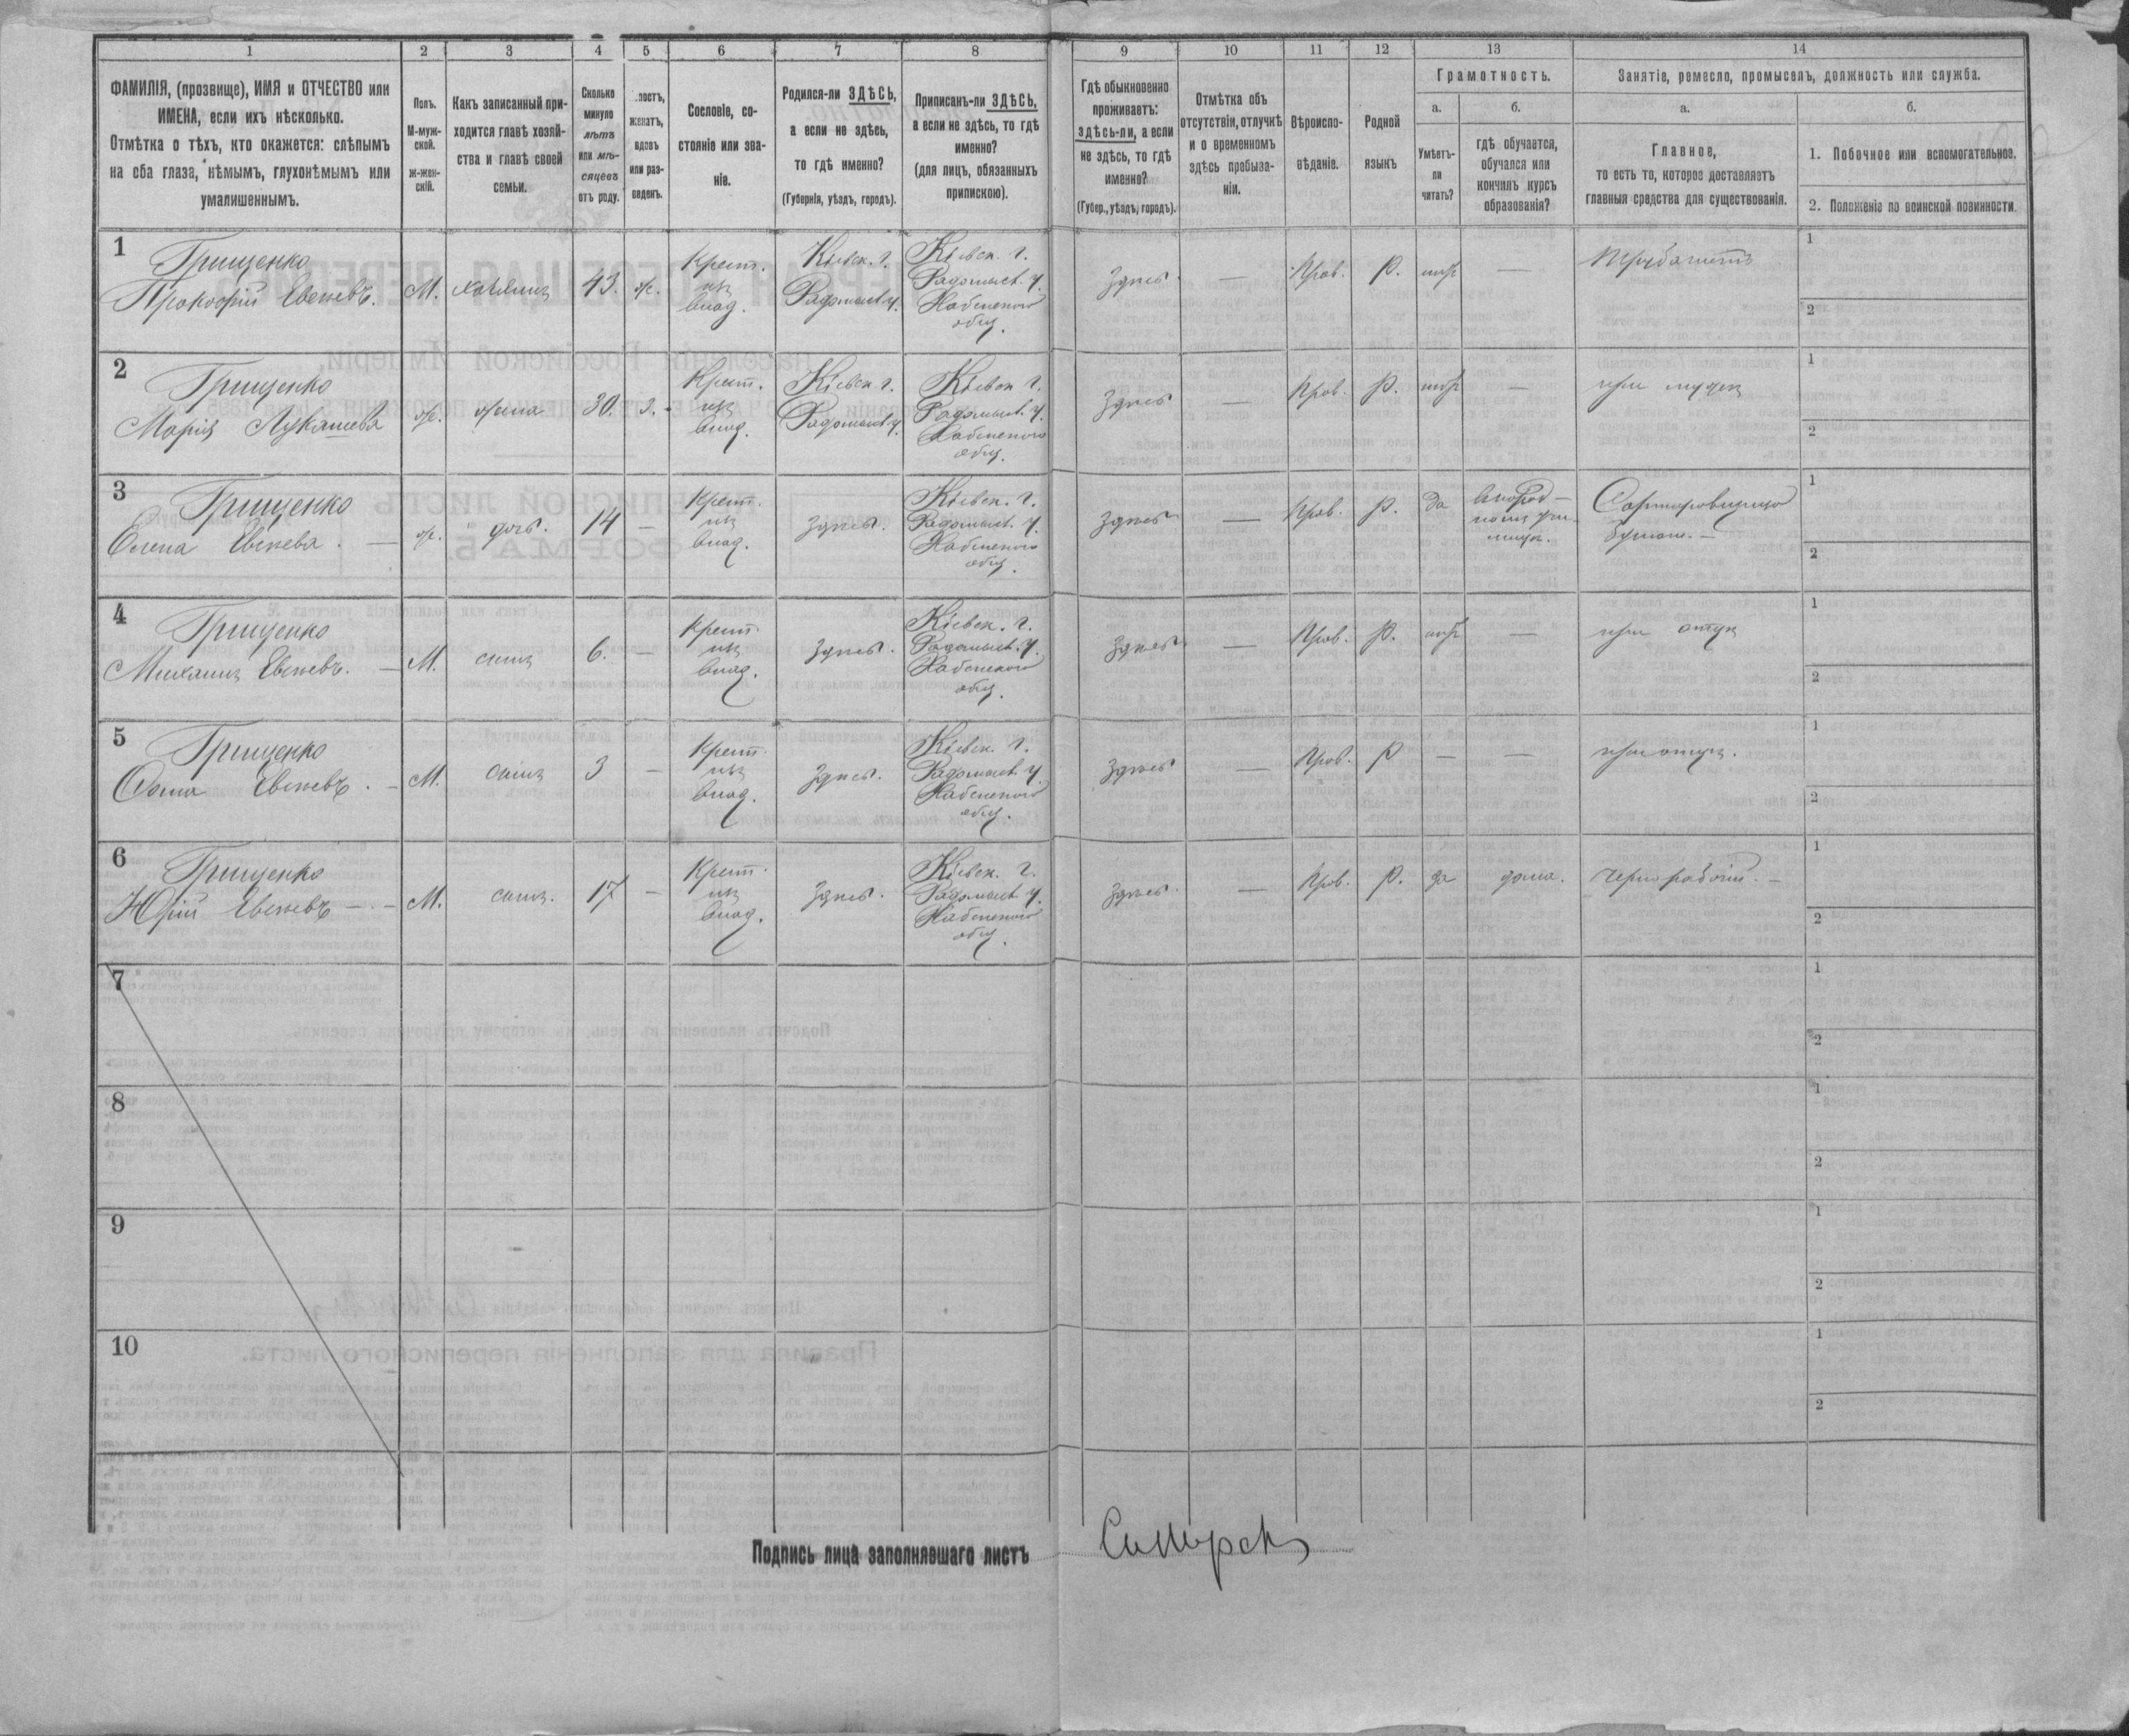 1 2 3 4 5 6 7 8 9 10 11 12 13 14
ФАМИЛІЯ, (прозвище), ИМЯ и ОТЧЕСТВО или
ИМЕНА, если ихъ нѣсколько.
Отмѣтка о тѣхъ, кто окажется: слѣпымъ
на оба глаза, нѣмымъ, глухонѣмымъ или
умалишеннымъ.
Полъ.
М-муж-
ской.
ж-жен-
скій.
Какъ записанный при-
ходится главѣ хозяй-
ства и главѣ своей
семьи.
Сколько
минуло
лѣтъ
или мѣ-
сяцевъ
отъ роду.
лостъ,
женатъ,
вдовъ
или раз-
веденъ.
Сословіе, со-
стояніе или зва-
ніе.
Родился-ли ЗДѢСЬ,
а если не здѣсь,
то гдѣ именно?
(Губернія, уѣздъ, городъ).
Приписанъ-ли ЗДѢСЬ,
а если не здѣсь, то гдѣ
именно?
(для лицъ, обязанныхъ
припискою).
Гдѣ обыкновенно
проживаетъ:
здѣсь-ли, а если
не здѣсь, то гдѣ
именно?
(Губер., уѣздъ, городъ).
Отмѣтка объ
отсутствіи, отлучкѣ
и о временномъ
здѣсь пребыва-
ніи.
Вѣроиспо-
вѣданіе.
Родной
языкъ
Грамотность.
а.
Умѣетъ-
ли
читать?
б.
гдѣ обучается,
обучался или
кончилъ курсъ
образованія?
Занятіе, ремесло, промыселъ, должность или служба.
а.
Главное,
то есть то, которое доставляетъ
главныя средства для существованія.
б.
1. Побочное или вспомогательное.
2. Положеніе по воинской повинности.
1
Грищенко
Прокофій Евсѣевъ.
М.
хозяинъ
43.
ж.
Крест.
изъ
влад.
Кіевск. г.
Радомысл. у.
Кіевск. г.
Радомысл. у.
Хабенского
общ.
Здѣсь.
—
Прав.
Р.
нѣтъ
—
1
2
2
Грищенко
Марія Лукашева
ж.
жена
30.
З.
Крест.
изъ
влад.
Кіевск г.
Радомысл у.
Кіевск г.
Радомысл. у.
Хабенского
общ.
Здѣсь
—
Прав.
Р.
нѣтъ
—
при мужѣ
1
2
3
Грищенко
Олена Евсѣева. —
ж.
дочь.
14
—
Крест.
изъ
влад.
Здѣсь.
Кіевск. г.
Радомысл. у.
Хабенского
общ.
Здѣсь
—
Прав.
Р.
да
Сортировщица
бумаж. —
1
2
4
Грищенко
Михаилъ Евсѣевъ. —
М.
сынъ
6.
—
Крест.
изъ
влад.
Здѣсь.
Кіевск. г.
Радомысл. у.
Хабенского
общ.
Здѣсь
—
Прав.
Р.
нѣтъ
—
при отцѣ
1
2
5
Грищенко
Фома Евсѣевъ. —
М.
сынъ
3
—
Крест.
изъ
влад.
Здѣсь.
Кіевск. г.
Радомысл. у.
Хабенского
общ.
Здѣсь
—
Прав.
Р
—
—
при отцѣ.
1
2
6
Грищенко
Юрій Евсѣевъ — . —
М.
сынъ.
17
—
Крест.
изъ
влад.
Здѣсь.
Кіевск. г.
Радомысл. у.
Хабенского
общ.
Здѣсь.
—
Прав.
Р.
да
дома.
Чернорабочій. —
1
2
7
1
2
8
1
2
9
1
2
10
1
2
Подпись лица заполнявшаго листъ